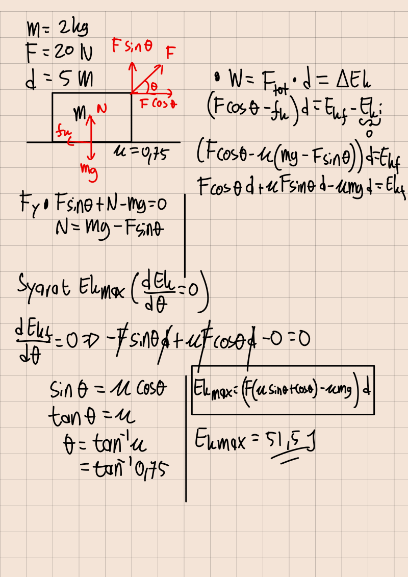 m = 2kg
F = 20 N
d = 5 m
F sinθ
F
θ
F cosθ
m
N
fk
mg
μ = 0,75
• W = Ftot • d = ΔEk
(F cosθ - fk) d = Ekf - Eki
0
(F cosθ - μ(mg - F sinθ)) d = Ekf
F cosθ d + μ F sinθ d - μmg d = Ekf
Fy • F sinθ + N - mg = 0
N = mg - F sinθ
Syarat Ek max (dEk/dθ = 0)
dEkf/dθ = 0 => -F sinθ d + μ F cosθ d - 0 = 0
sin θ = μ cosθ
tan θ = μ
θ = tan⁻¹ μ
= tan⁻¹ 0,75
Ek max = (F(μ sinθ + cosθ) - μmg) d
Ek max = 51,5 J